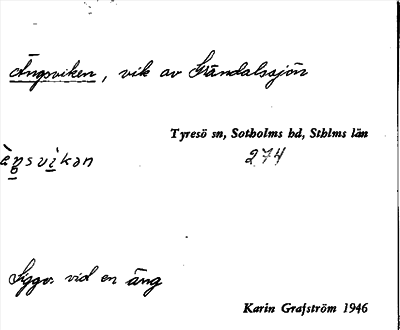 Ängsviken, vik av Grändalssjön
Tyresö sn, Sotholms hd, Sthlms län
274
Ligger vid en äng
Karin Grafström 1946